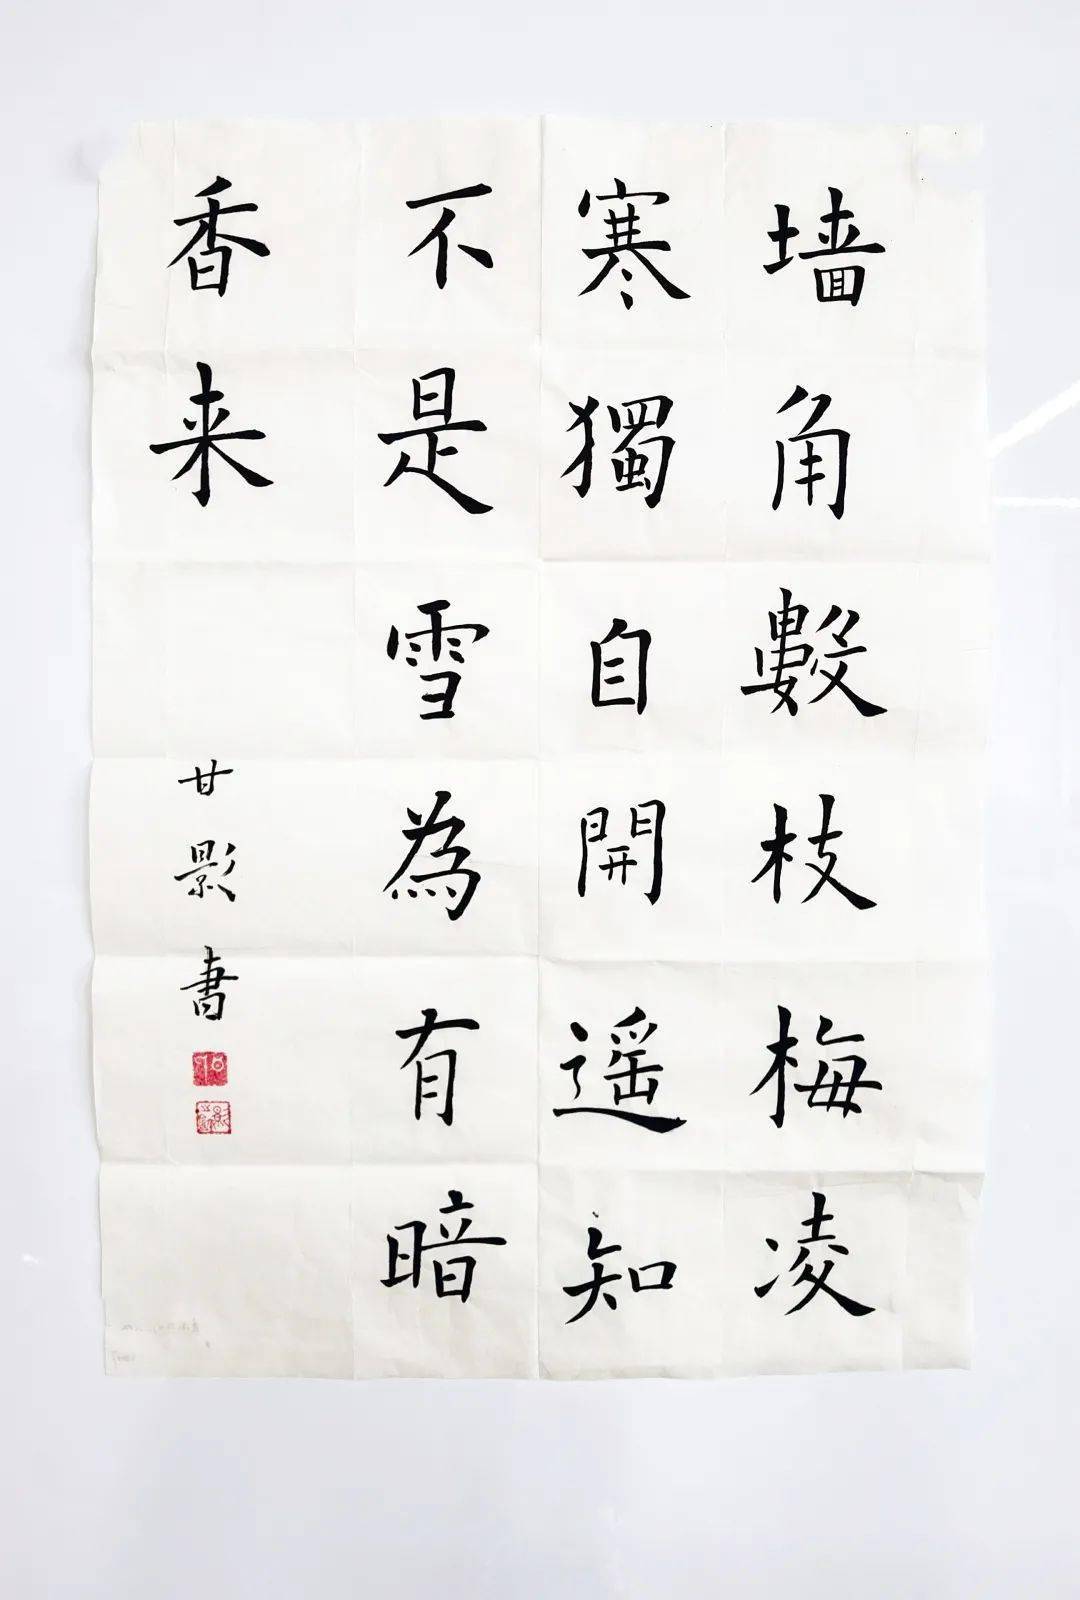 墙角數枝梅凌
寒獨自開遥知
不是雪為有暗
香来
甘影书